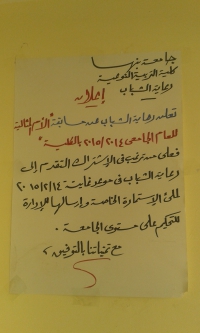 جامعة بنها
كلية التربية النوعية
رعاية الشباب
إعلان
تعلن رعاية الشباب عن مسابقة "الأم المثالية"
للعام الجامعى ٢٠١٤/٢٠١٥ بالكلية"
فعلى من ترغب فى الاشتراك التقدم إلى
رعاية الشباب فى موعد غايته ٢٠١٥/٢/١٤
لملئ الاستمارة الخاصة وإرسالها للإدارة
للتحكيم على مستوى الجامعة.
مع تمنياتنا بالتوفيق